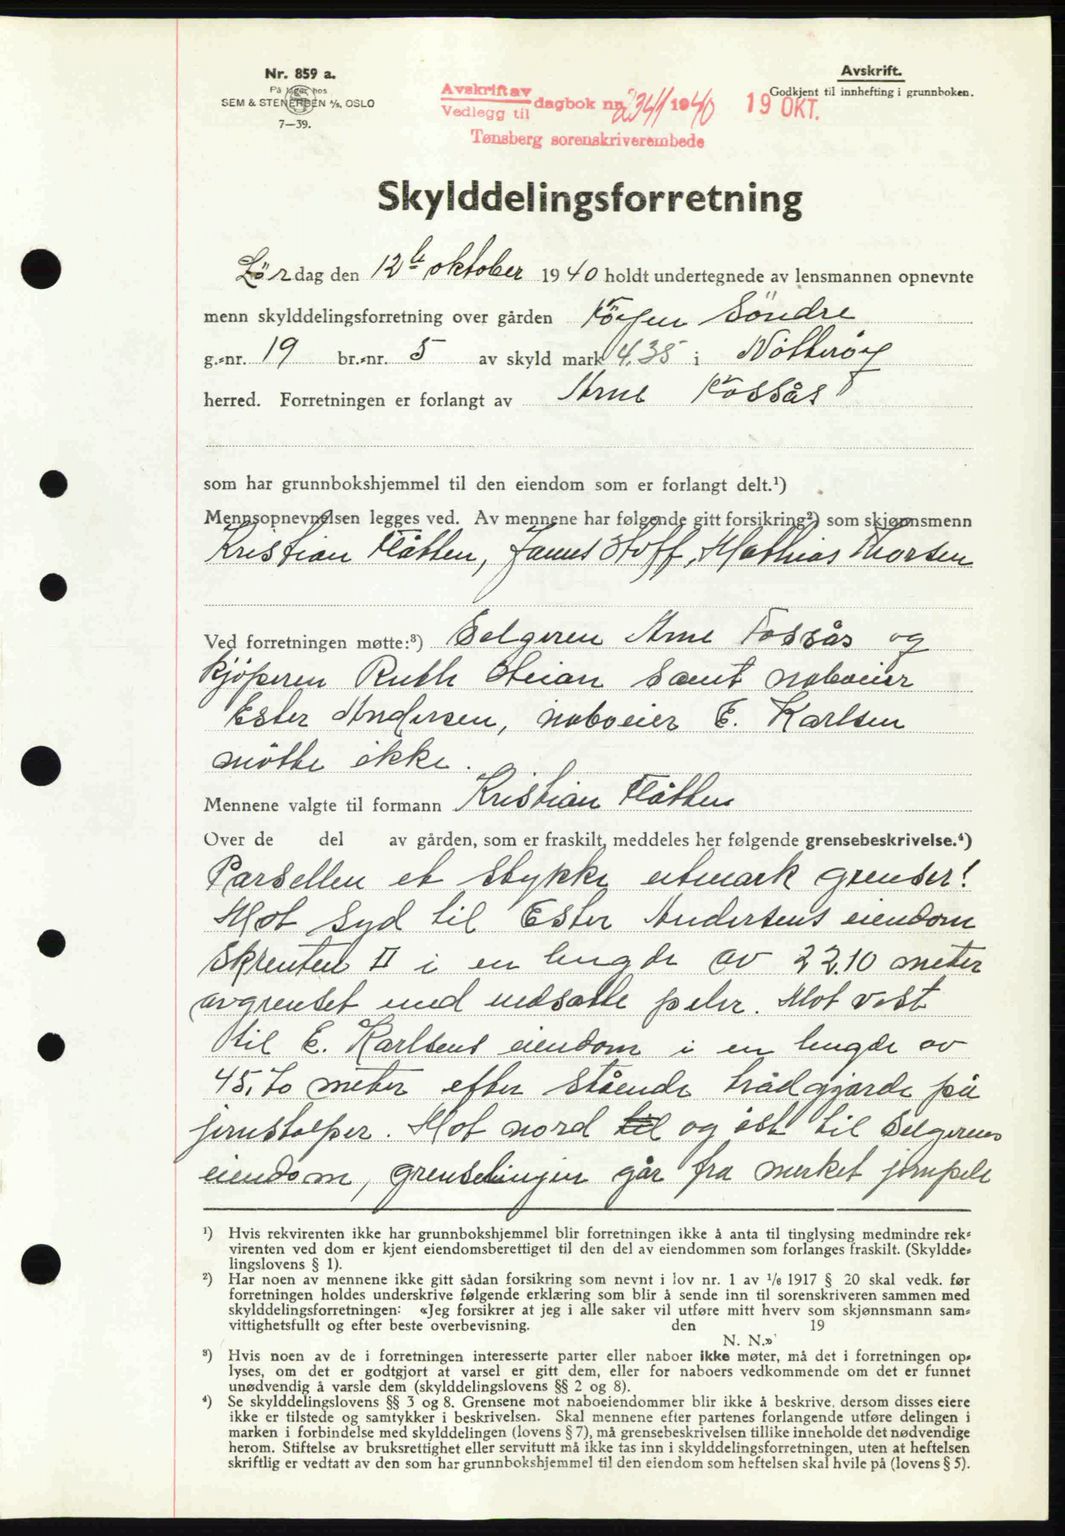 Nr. 859 a.
På lager hos
SEM & STENERSEN A/S, OSLO
7—39.
Avskrift av
Vedlegg til dagbok nr. 2344 1940 19 OKT.
Tønsberg sorenskriverembede
Avskrift.
Godkjent til innhefting i grunnboken.
Skylddelingsforretning
Lørdag den 12te oktober 1940 holdt undertegnede av lensmannen opnevnte
menn skylddelingsforretning over gården Föyen Söndre
g.-nr. 19 br.-nr. 5 av skyld mark 4.35 i Nötteröy
herred. Forretningen er forlangt av Arne Fossås
som har grunnbokshjemmel til den eiendom som er forlangt delt.¹)
Mennsopnevnelsen legges ved. Av mennene har følgende gitt forsikring²) som skjønnsmenn
Kristian Flåtten, James Hoff, Mathias Thorsen
Ved forretningen møtte:³) Selgeren Arne Fossås og
kjöperen Ruth Steian samt naboeier
Ester Andersen, naboeier E. Karlsen
mötte ikke.
Mennene valgte til formann Kristian Flåtten
Over de del av gården, som er fraskilt, meddeles her følgende grensebeskrivelse.⁴)
Parsellen et stykke utmark grenser!
Mot syd til Ester Andersens eiendom
Skrenten II i en lengde av 22.10 meter
avgrenset med nedsatte peler. Mot vest
til E. Karlsens eiendom i en lengde av
45,70 meter efter stående trådgjærde på
jernstolper. Mot nord til og öst til Selgerens
eiendom, grenselinjen går fra merket jernpele
¹) Hvis rekvirenten ikke har grunnbokshjemmel blir forretningen ikke å anta til tinglysing medmindre rek-
virenten ved dom er kjent eiendomsberettiget til den del av eiendommen som forlanges fraskilt. (Skyldde-
lingslovens § 1).
²) Har noen av mennene ikke gitt sådan forsikring som nevnt i lov nr. 1 av 1/6 1917 § 20 skal vedk. før
forretningen holdes underskrive følgende erklæring som blir å sende inn til sorenskriveren sammen med
skylddelingsforretningen: «Jeg forsikrer at jeg i alle saker vil utføre mitt hverv som skjønnsmann sam-
vittighetsfullt og efter beste overbevisning. den 19
N. N.»
³) Hvis noen av de i forretningen interesserte parter eller naboer ikke møter, må det i forretningen op-
lyses, om det er godtgjort at varsel er gitt dem, eller for naboers vedkommende om det er funnet
unødvendig å varsle dem (skylddelingslovens §§ 2 og 8).
⁴) Se skylddelingslovens §§ 3 og 8. Grensene mot naboeiendommer blir ikke å beskrive, dersom disses eiere
ikke er tilstede og samtykker i beskrivelsen. Skal mennene efter partenes forlangende utføre delingen i
marken i forbindelse med skylddelingen (lovens § 7), må grensebeskrivelsen tillike inneholde det nødvendige
herom. Stiftelse av bruksrettighet eller servitutt må ikke tas inn i skylddelingsforretningen, uten at heftelsen
skriftlig er vedtatt av den som har grunnbokshjemmel til den eiendom som heftelsen skal hvile på (lovens § 5).